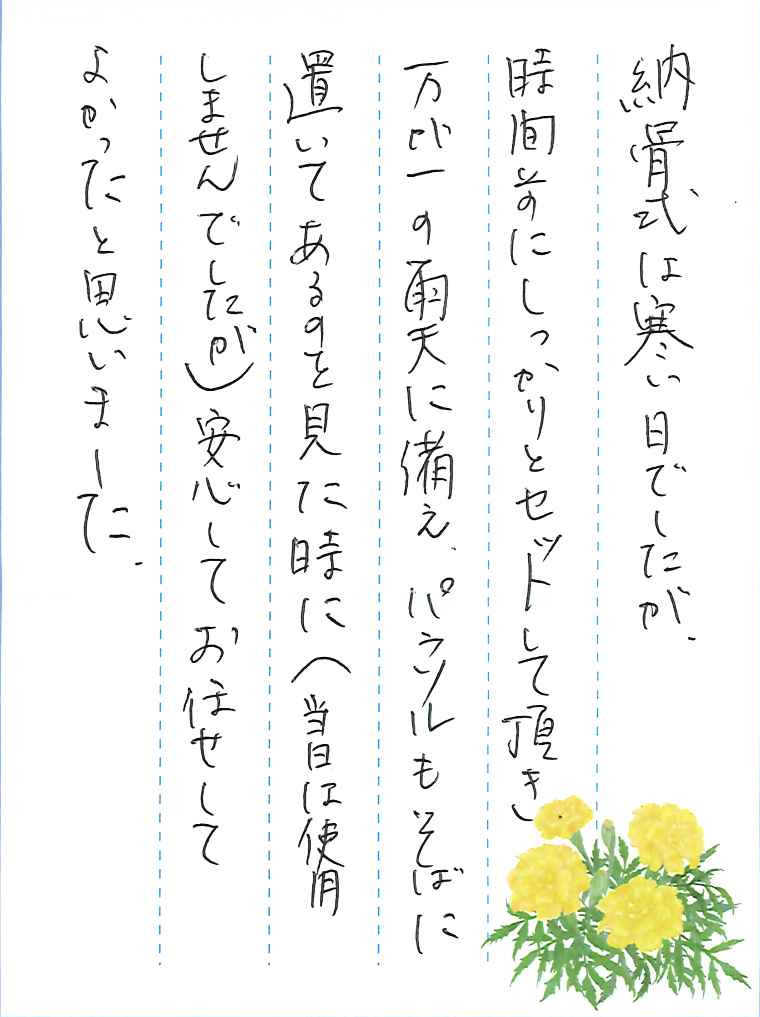 納骨式は寒い日でしたが、
時間前にしっかりとセットして頂き
万が一の雨天に備え、パラソルもそばに
置いてあるのを見た時に(当日は使用
しませんでしたが)安心してお任せして
よかったと思いました。